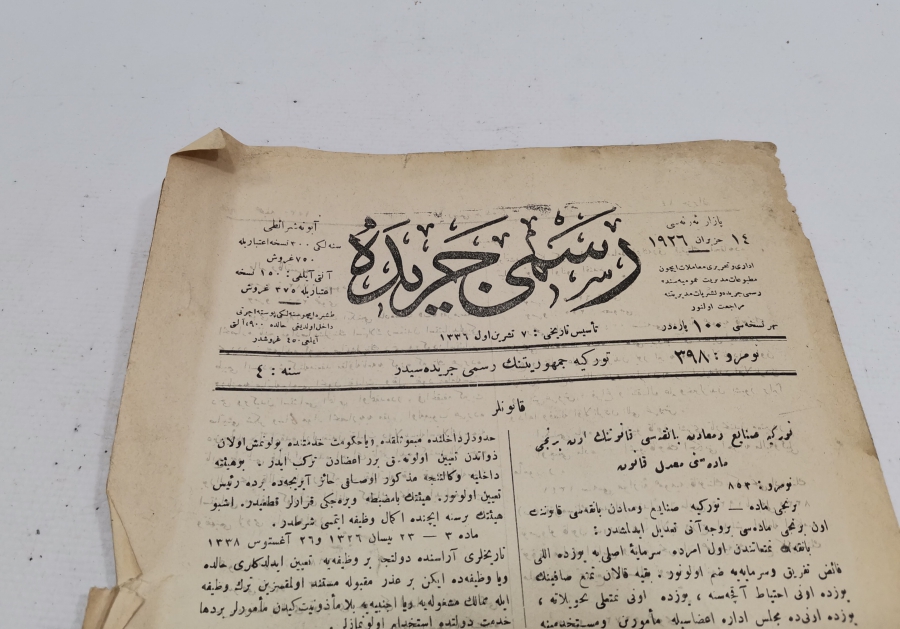 رسمی جریده
پازار ئرتەسی
١٤ حزیران ١٩٢٦
اداری و تحریری معاملات ایچون
مطبوعات مدیریت عمومیه‌سنده
رسمی جریده و نشریات مدیریتنه
مراجعت اولنور
هر نسخه‌سی ١٠٠ پاره‌در
آبونه شرائطی
سنه‌لکی ٣٠٠ نسخه اعتباریله
٧٥٠ غروش
آلتی آیلغی : ١٥٠ نسخه
اعتباریله ٣٧٥ غروش
تأسیس تاریخی : ٧ تشرین اول ١٣٣٦
نومرو : ٣٩٨
تورکیه جمهوریتنك رسمی جریده‌سیدر
سنه : ٤
قانونلر
تورکیه صنایع و معادن بانقه‌سی قانوننك اون برنجی
ماده‌سنی معدل قانون
نومرو : ٨٥٣
برنجی ماده — تورکیه صنایع و معادن بانقه‌سی قانوننك
اون برنجی ماده‌سی بروجه آتی تعدیل ایدلمشدر :
بانقه‌نك تمتعاتندن اول امرده سرمایهٔ اصلی‌یه یوزده اللی
فائض تفریق و سرمایه‌یه ضم اولونور . بقیه قالان تمتع صافینك
یوزده اونی احتیاط آقچه‌سنه ، یوزده اونی تمتعلی تحویلاته ،
یوزده اونی‌ده مجلس اداره اعضاسیله مأمورین و مستخدمینه
حدود لر داخلنده میمون‌لقده و یا حکومت خدمتنده بولونمش اولان
ذواتدن تعیین اولونه‌جق برر اعضادن ترکب ایدر . بو هیئته
داخلیه وکالتنجه مذکور اوصافی حائز آیریجه‌ده برده رئیس
تعیین اولونور . هیئتك بامضبطه ویره‌جکی قرارلر قطعیدر . اشبو
هیئتك برسنه ایچنده اکمال وظیفه ایتمسی شرطدر .
ماده ٣ — ٢٣ نیسان ١٣٣٦ و ٢٦ آغستوس ١٣٣٨
تاریخلری آراسنده دولتجه بر وظیفه‌یه تعیین ایدلدکلری حالده
و یا وظیفه‌ده ایکن بر عذر مقبوله مستند اولمقسزین ترك وظیفه
ایله ممالك مشغوله‌یه و یا اجنبیه‌یه بلا مأذونیت کیدن مأمورلر بردها
خدمت دولتده استخدام اولونمازلر